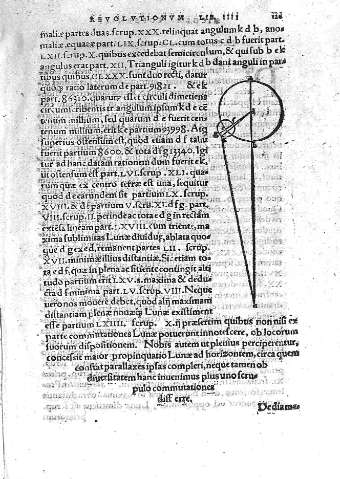 REVOLVTIONVM LIB. IIII
maliæ partes duas. scrup. XXX. relinquit angulum k d b, ano-
maliæ, equaeæ part. LIX. scrup. CL. cum totus c d b fuerit part.
LXII. scrup. X. quibus excedebat semicirculum, & qui sub b e k
angulus erat part. XII. Trianguli igitur k d b dati anguli in par-
tibus quibus CLXXX. sunt duo recti, datur
quoq; ratio laterum d e part. 91821. & e k
part. 86310. quarum est circuli dimetiens
circumscribentis triangulum ipsum k d e cen-
tum millium, sed quarum d e fuerit cen-
tenum millium, erit k e partium 93998. Atq
superius ostensum est, quod etiam d f talium
fuerit partium 8600. & tota d f g 13340. Igi
tur ad hanc datam rationem dum fuerit e k,
ut ostensum est part. LVI. scrup. XLI. qua-
rum quæ ex centro terræ est una, sequitur
quod d e earundem sit partium LX. scrup.
XVIII. & d f partium V. scru. XI. d f g. part.
VIII. scrup. II. perinde ac tota e d g in rectam
extesa lineam part. LXVIII. cum triente, ma
xima sublimitas Lunæ diuiduæ, ablata quoq
que d g ex e d, remanent partes LII. scrup.
XVII. minimæ illius distantiæ. Sic etiam to-
ta e d f, quæ in plena ac sitiente contingit alti
tudo partium erit LXV. s. maxima & dedu-
cta d f minima part. LV. scrup. VIII. Neque
uero nos mouere debet, quod alij maximam
distantiam plenæ nouæq; Lunæ existiment
esse partium LXIIII. scrup. X. ij præsertim quibus non nisi ex
parte commutationes Lunæ potuerunt innotescere, ob locorum
suorum dispositionem. Nobis autem ut plenius perciperentur,
concessit maior propinquatio Lunæ ad horizontem, circa quem
constat parallaxes ipsas compleri, neque tamen ob
diuersitatem hanc inuenimus plus uno scru-
pulo commutationes
differre.
De diame-